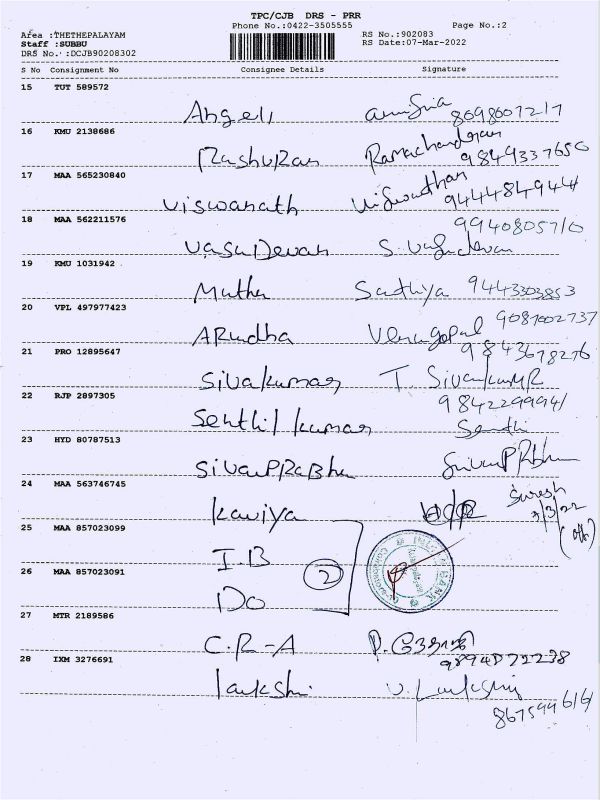 TPC/CJB DRS - PRR
Phone No.:0422-3505555 Page No.:2
Area :THETHEPALAYAM RS No.:902083
Staff :SUBBU RS Date:07-Mar-2022
DRS No. :DCJB90208302
S No Consignment No Consignee Details Signature
15 TUT 589572
Angeli 8098007217
16 KMU 2138686
Ramachandran
9849337650
17 MAA 565230840
Viswanath Viswanathan
9444484944
18 MAA 562211576
9940805710
VasuDevan S. Vasudevan
19 KMU 1031942
Muthu Sathiya 9443303853
20 VPL 497977423
9087002737
ARudha Venugopal
21 PRO 12895647
9843678276
Sivakumar T. SivakumR
22 RJP 2897305
9842299941
Senthil kumar Senthi
23 HYD 80787513
SivaPRaBhu SivaPRbhu
24 MAA 563746745
Kaviya Suresh
7/3/22
25 MAA 857023099
I.B
2
26 MAA 857023091
Do
27 MTR 2189586
C.R-A P.
9894D72238
28 IXM 3276691
lakshi V. Lakshmi